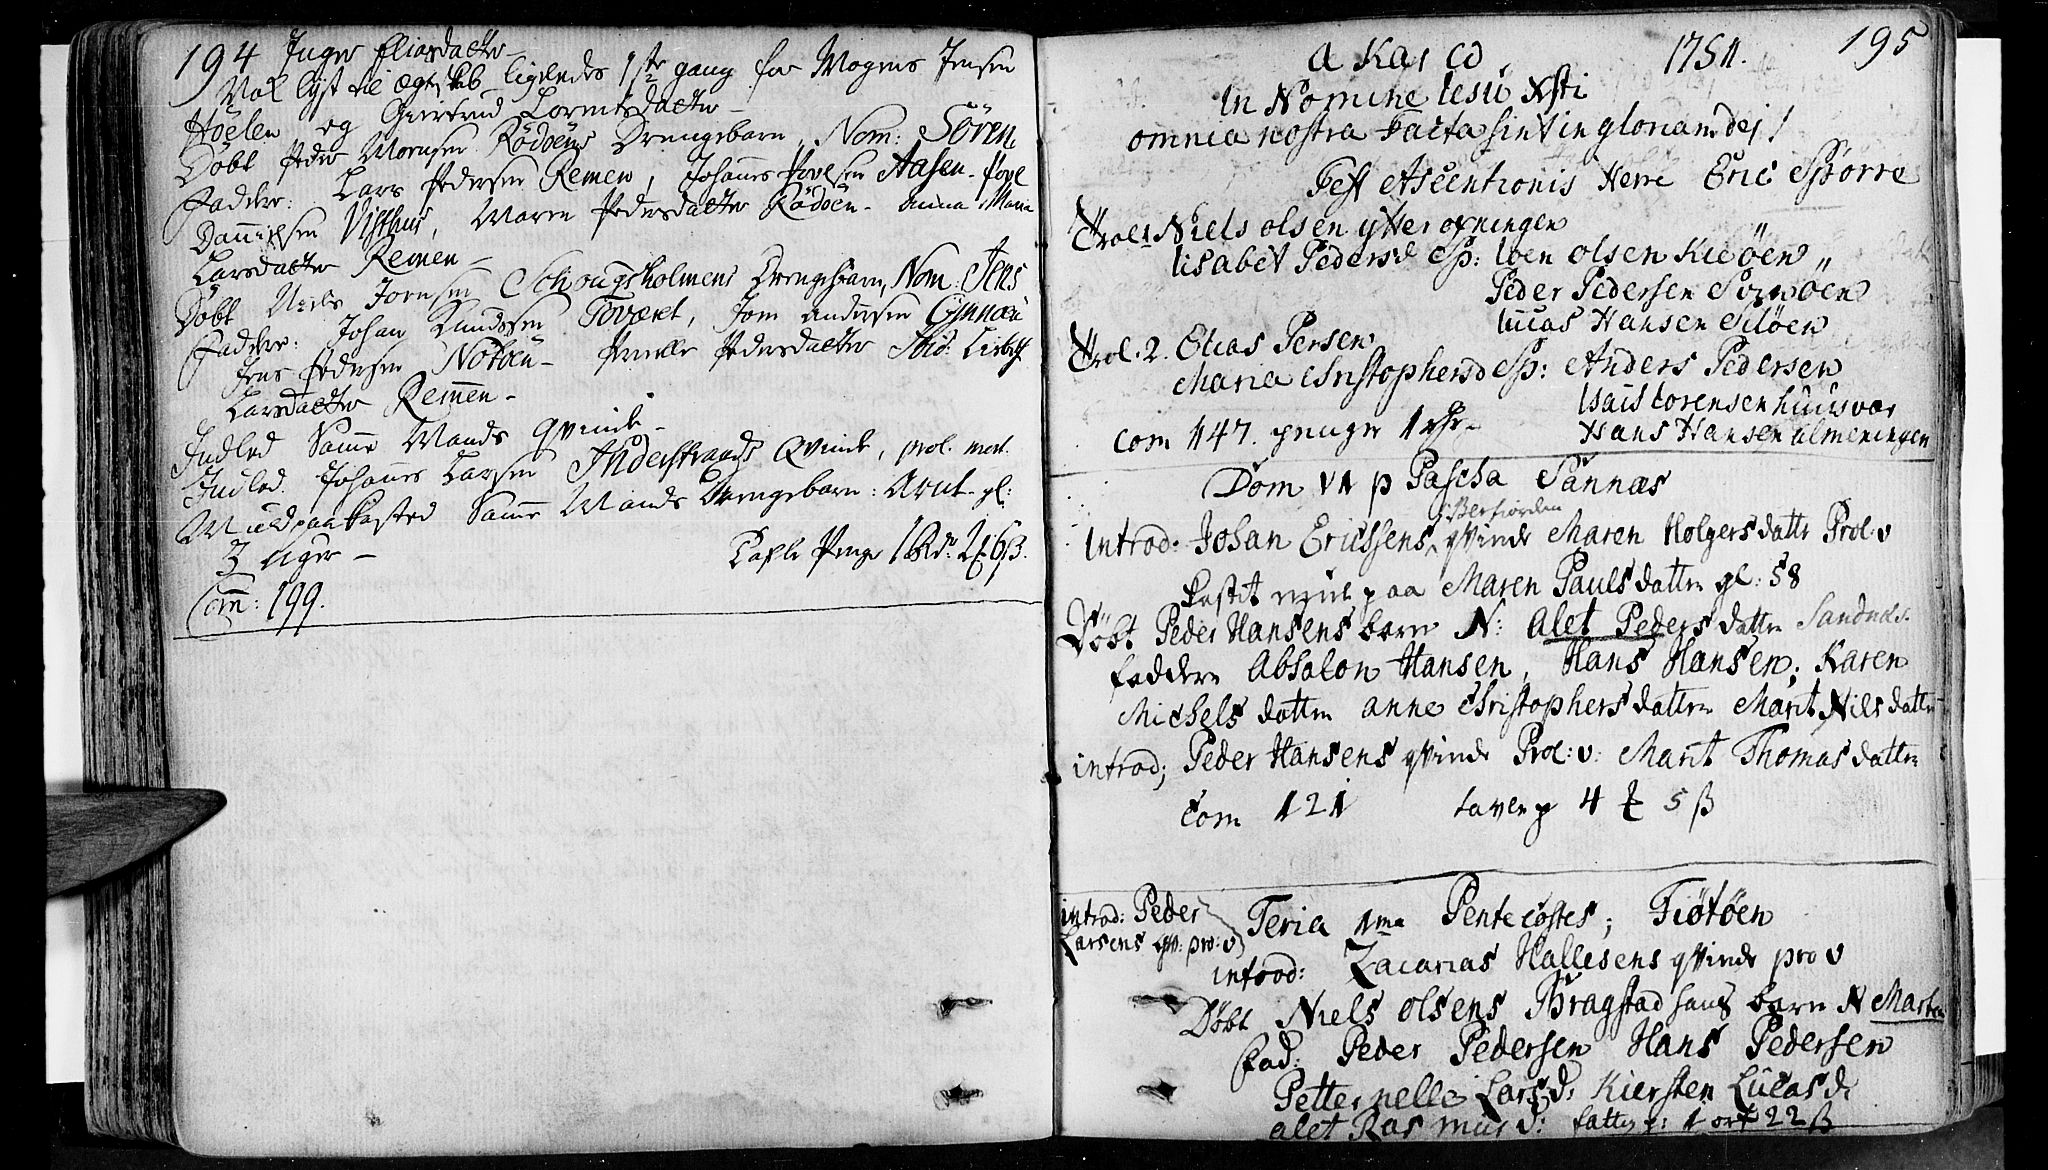 194 Inger Eliasdatter
Vak lyst til Ægteskab, ligeledes 1ste gang for Mogens Jensen
Höelen og Giertrud Lorentsdatter
Döbt Peder Monsen Rödöens Drengebarn, Nom: Sören
Faddere: Lars Pedersen Remen, Johannes Povelsen Aasen. Povl
Dannielsen Visthus, Maren Pedersdatter Rödöen. Anna Maria
Larsdatter Remen
Döbt Niels Jonsen Schougsholmens Drengebarn, Nom: Jens
Faddere: Johan Knudssen Toværet, Jom Andersen
Jens Pedersen Notöen. Pernelle Pedersdatter Ibid: Lisbeth
Larsdatter Remen.
Indled Samme Mands Qvinde
Indled. Johannes Larsen Inderstrands Qvinde, prol. mort.
Muldpaakasted Samme Mands Drengebarn: Arnt. gl:
3 Uger
Tafle Penge 1 Rdr. 2 ₤ 6 ß.
Com: 199.
195
a Kal Cd, 1754.
In Nomine Iesu Xsti
omnia nostra Facta sint in gloriam dej!
Fest Ascentionis Herre Eric Sporre
Trol 1 Niels olsen ytter øxningen
lisabet Pedersd Sp: Joen olsen Kieöen
Peder Pedersen Sorwöen
lucas Hansen Silöen
Trol. 2. Elias Persen
Maria Christophersd Sp: Anders Pedersen
Isais Lorensen huusvær
com 147. penger 1 Hans Hansen almeningen
Dom V p Pascha Sannæs
Introd: Johan Ericksens qvinde Maren Holgersdatter Prol: v
kastet muld paa Maren Paulsdatter gl: 58
Döbt Peder Hansens barn N: Alet Pedersdatter Sandnæs.
faddere Absalon Hansen, Hans Hansen; Karen
Michelsdatter anne Christophersdatter Marit Nilsdatter
introd; Peder Hansens qvinde Prol: v: Marit Thomasdatter
Com 121 tavlep 4 ₤ 5 ß
introd: Peder
Larsens qv: pro: v
Feria 1ma Pentecostes; Tiötöen
introd: Zacarias Hallesens qvinde pro v
Döbt Niels olsens Bragstad hans barn N Marten
Fad: Peder Pedersen Hans Pedersen
Petternelle Larsd: Kiersten Lucasd:
alet Rasmusd: 1 ort 22 ß